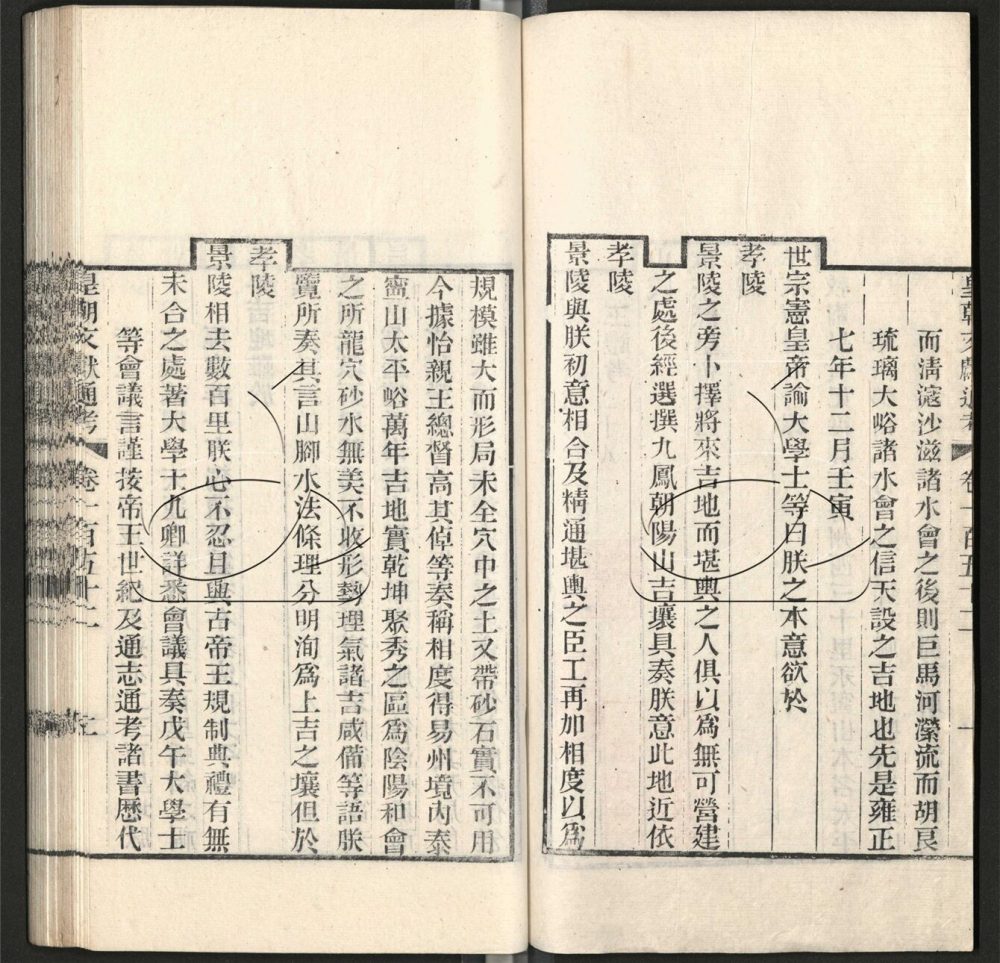 皇朝文獻通考 卷一百五十二
而清滱沙滋諸水會之後則巨馬河瀠流而胡良
琉璃大峪諸水會之信天設之吉地也先是雍正
七年十二月壬寅
世宗憲皇帝諭大學士等曰朕之本意欲於
孝陵
景陵之旁卜擇將來吉地而堪輿之人俱以爲無可營建
之處後經選擇九鳳朝陽山吉壤具奏朕意此地近依
孝陵
景陵與朕初意相合及精通堪輿之臣工再加相度以爲
規模雖大而形局未全穴中之土又帶砂石實不可用
今據怡親王總督高其倬等奏稱相度得易州境內泰
寧山太平峪萬年吉地實乾坤聚秀之區爲陰陽和會
之所龍穴砂水無美不收形勢理氣諸吉咸備等語朕
覽所奏其言山腳水法條理分明洵爲上吉之壤但於
孝陵
景陵相去數百里朕心不忍且與古帝王規制典禮有無
未合之處著大學士九卿詳悉會議具奏戊午大學士
等會議言謹按帝王世紀及通志通考諸書歷代
皇朝文獻通考 卷一百五十二